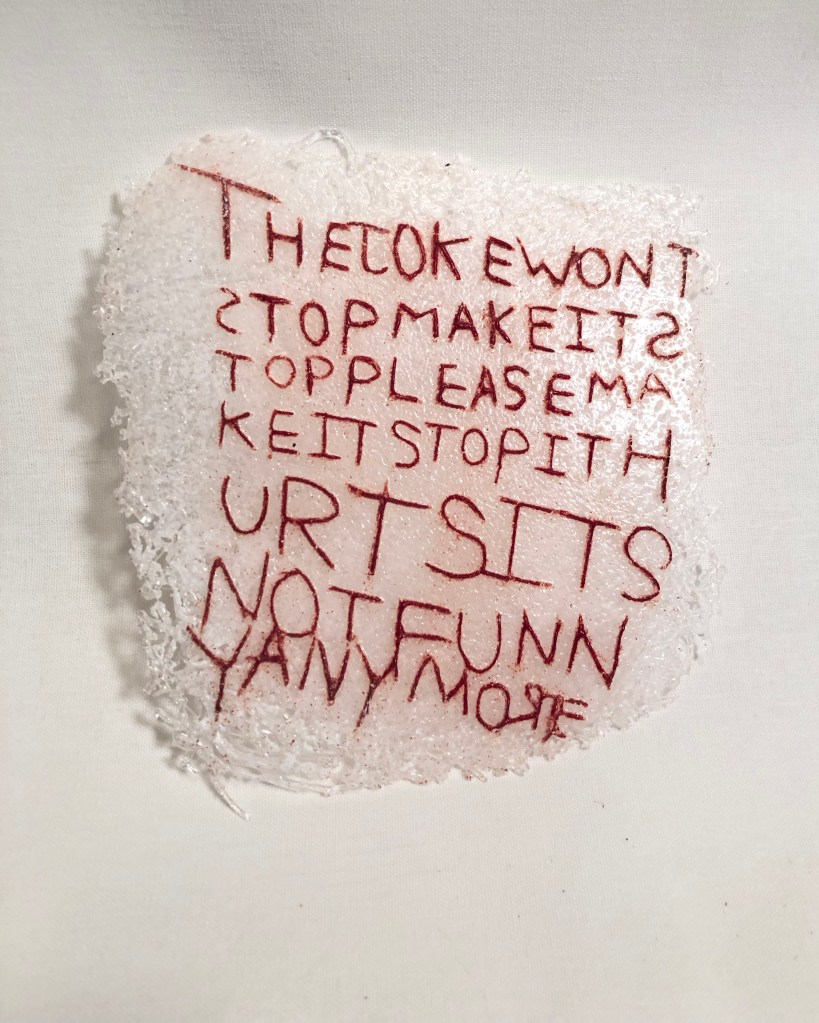 THEJOKEWONT
STOPMAKEITS
TOPPLEASEMA
KEITSTOPITH
URTSITS
NOTFUNN
YANYMORE